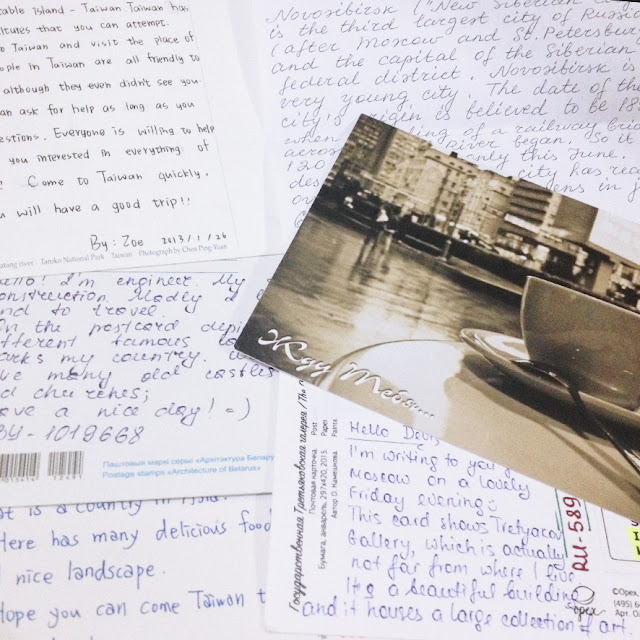 able Island - Taiwan Taiwan has
ltures that you can attempt.
o Taiwan and visit the place of
ople in Taiwan are all friendly to
although they even didn't see you
an ask for help as long as you
estions. Everyone is willing to help
you interested in everything of
? Come to Taiwan quickly.
u will have a good trip!!
By: Zoe 2013/1/26
atang river Taroko National Park Taiwan Photograph by Chen Ping-Yuan
Novosibirsk ("New Siberian
is the third largest city of Russia
(after Moscow and St. Petersburg
and the capital of the Siberian
federal district. Novosibirsk is
very young city. The date of the
city's origin is believed to be
when of a railway
across river began. So it
only this June.
city has
Жду Тебя...
ello! I'm engineer. My
onstruction.
nd to travel.
n the postcard
ifferent famous
arks my country.
ve many old castles
d churches;
ave a nice day! =)
BY-1019668
Паштовыя маркі серыі «Архітэктура Беларусі
Postage stamps «Architecture of Belarus»
is a country in
Here has many delicious food
nice landscape.
Hope you can come Taiwan
Государственная Третьяковская галерея / The
Почтовая карточка Post
Бумага, акварель, 297x420, 2015 Paper
Автор О. Paints
Hello
I'm writing to you
Moscow on a lovely
Friday evening:
This card shows Tretyakov
Gallery, which is actually
not far from where I live
It's a beautiful building
and it houses a large collection of art
RU-589
©Орех
(495) 6
Арт. От